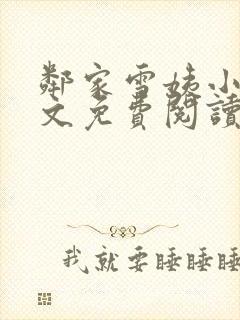 鄰家雪姨小
文免費閱讀
我就要睡睡睡